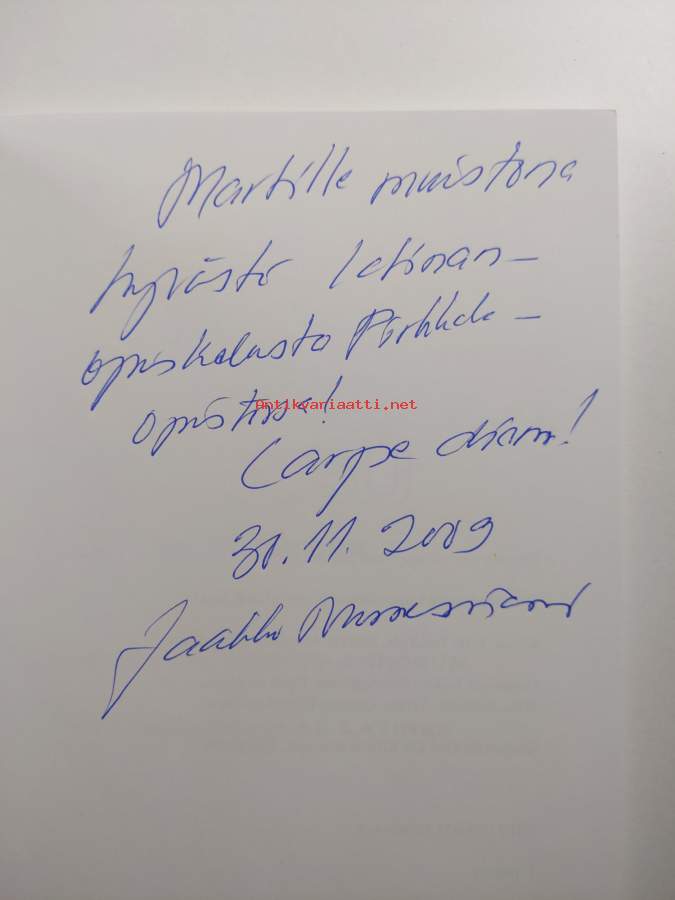 Martille muistona
hyvästä latinan-
opiskelusta Pirkkala-
opistossa!
antikvariaatti.net
Carpe diem!
30.11. 2009
Jaakko